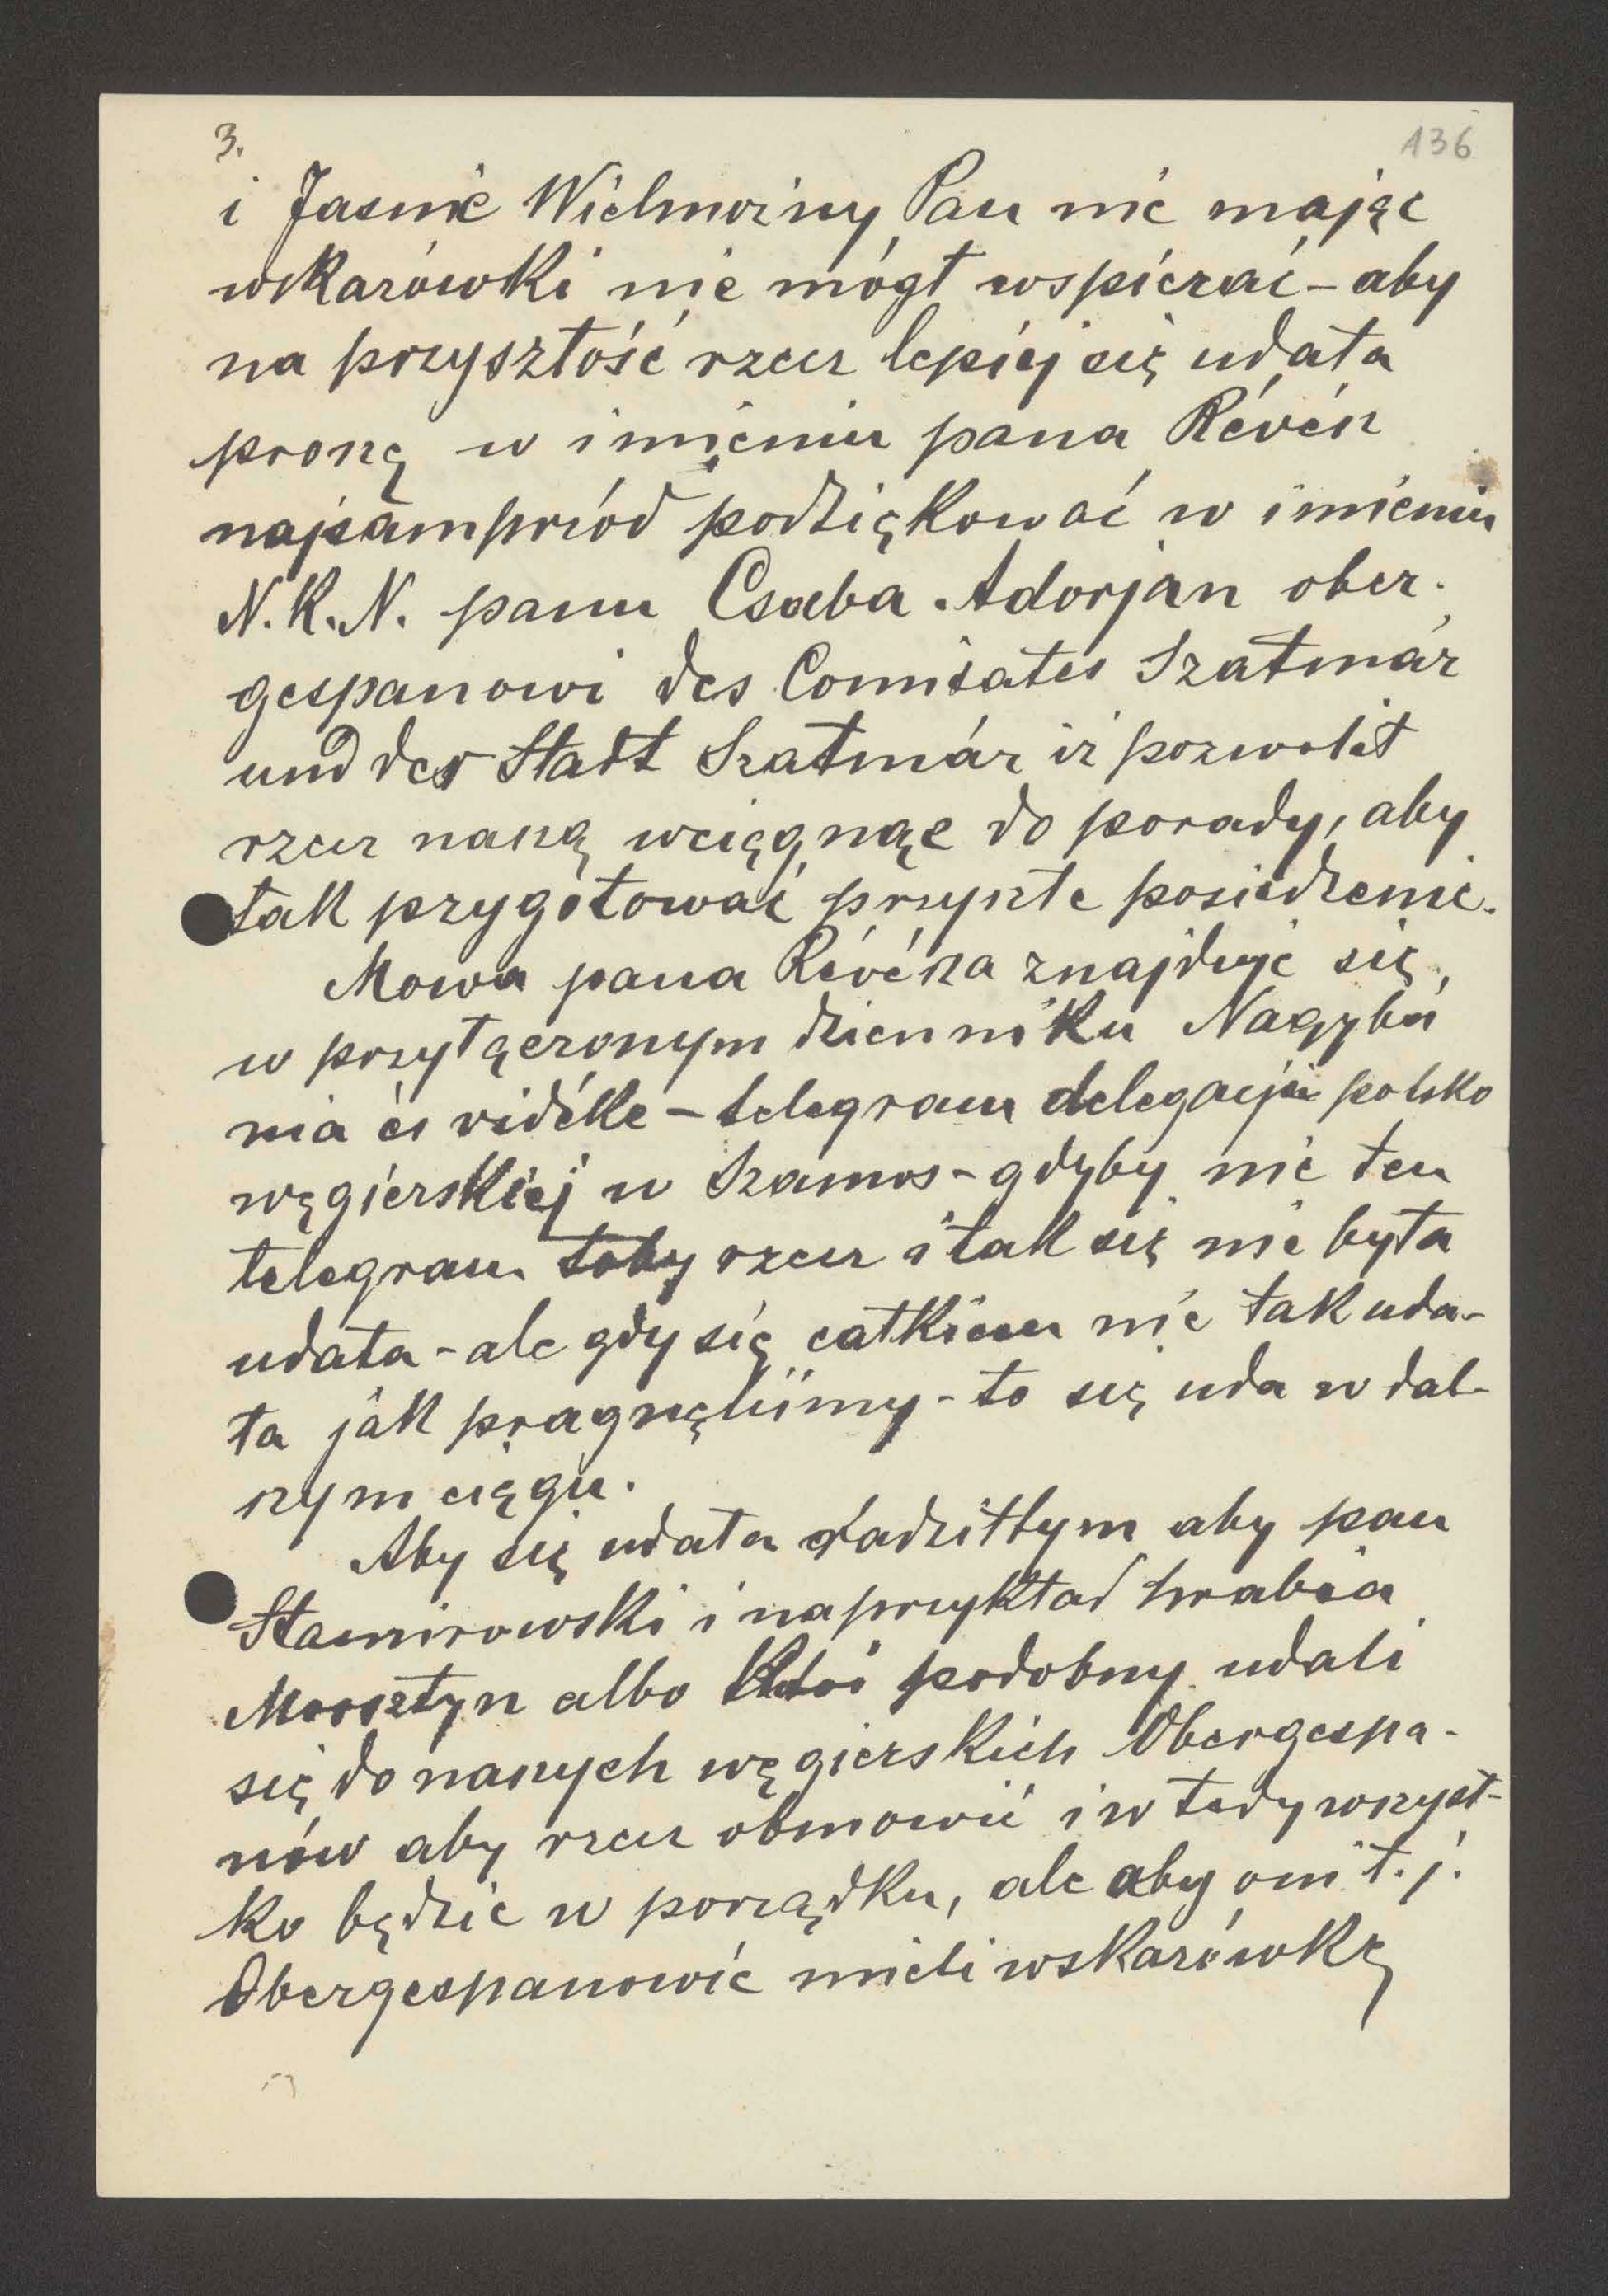 3.
136
i Jasnie Wielmożny Pan nie mając
wskazówki nie mógł wspierać – aby
na przyszłość rzecz lepiej się udała
proszę w imieniu pana Révész
najsamprzód podziękować w imieniu
N.K.N. panu Csaba Adorján ober-
gespanowi des Comitates Szatmár
und der Stadt Szatmár iż pozwolił
rzecz naszą wciągnąć do porady, aby
tak przygotować przyszłe posiedzenie.
Mowa pana Révésza znajduje się
w przyłączonym dzienniku Nagybá
nia és vidéke – telegram delegacji polsko
węgierskiej w Szamos – gdyby nie ten
telegram toby rzecz i tak się nie była
udała – ale gdy się całkiem nie tak uda-
ła jak pragnęliśmy – to się uda w dal-
szym ciągu.
Aby się udała radziłbym aby pan
Stamirowski i naprzykład hrabia
Morsztyn albo ktoś podobny udali
się do naszych węgierskich Obergespa-
nów aby rzecz obmowić i w tedy wszyst-
ko będzie w porządku, ale aby oni t.j.
Obergespanowie mieli wskazówkę